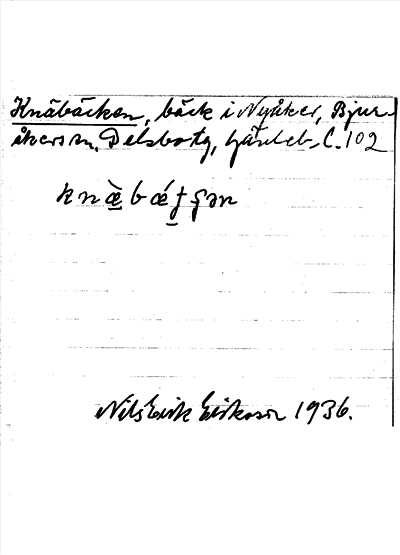 Knäbäcken, bäck i Nyåker, Bjur-
åkers sn, Delsbo tg, Gävleb. l. 102
knæ̀bǽtʂən
Nils Erik Eriksson 1936.